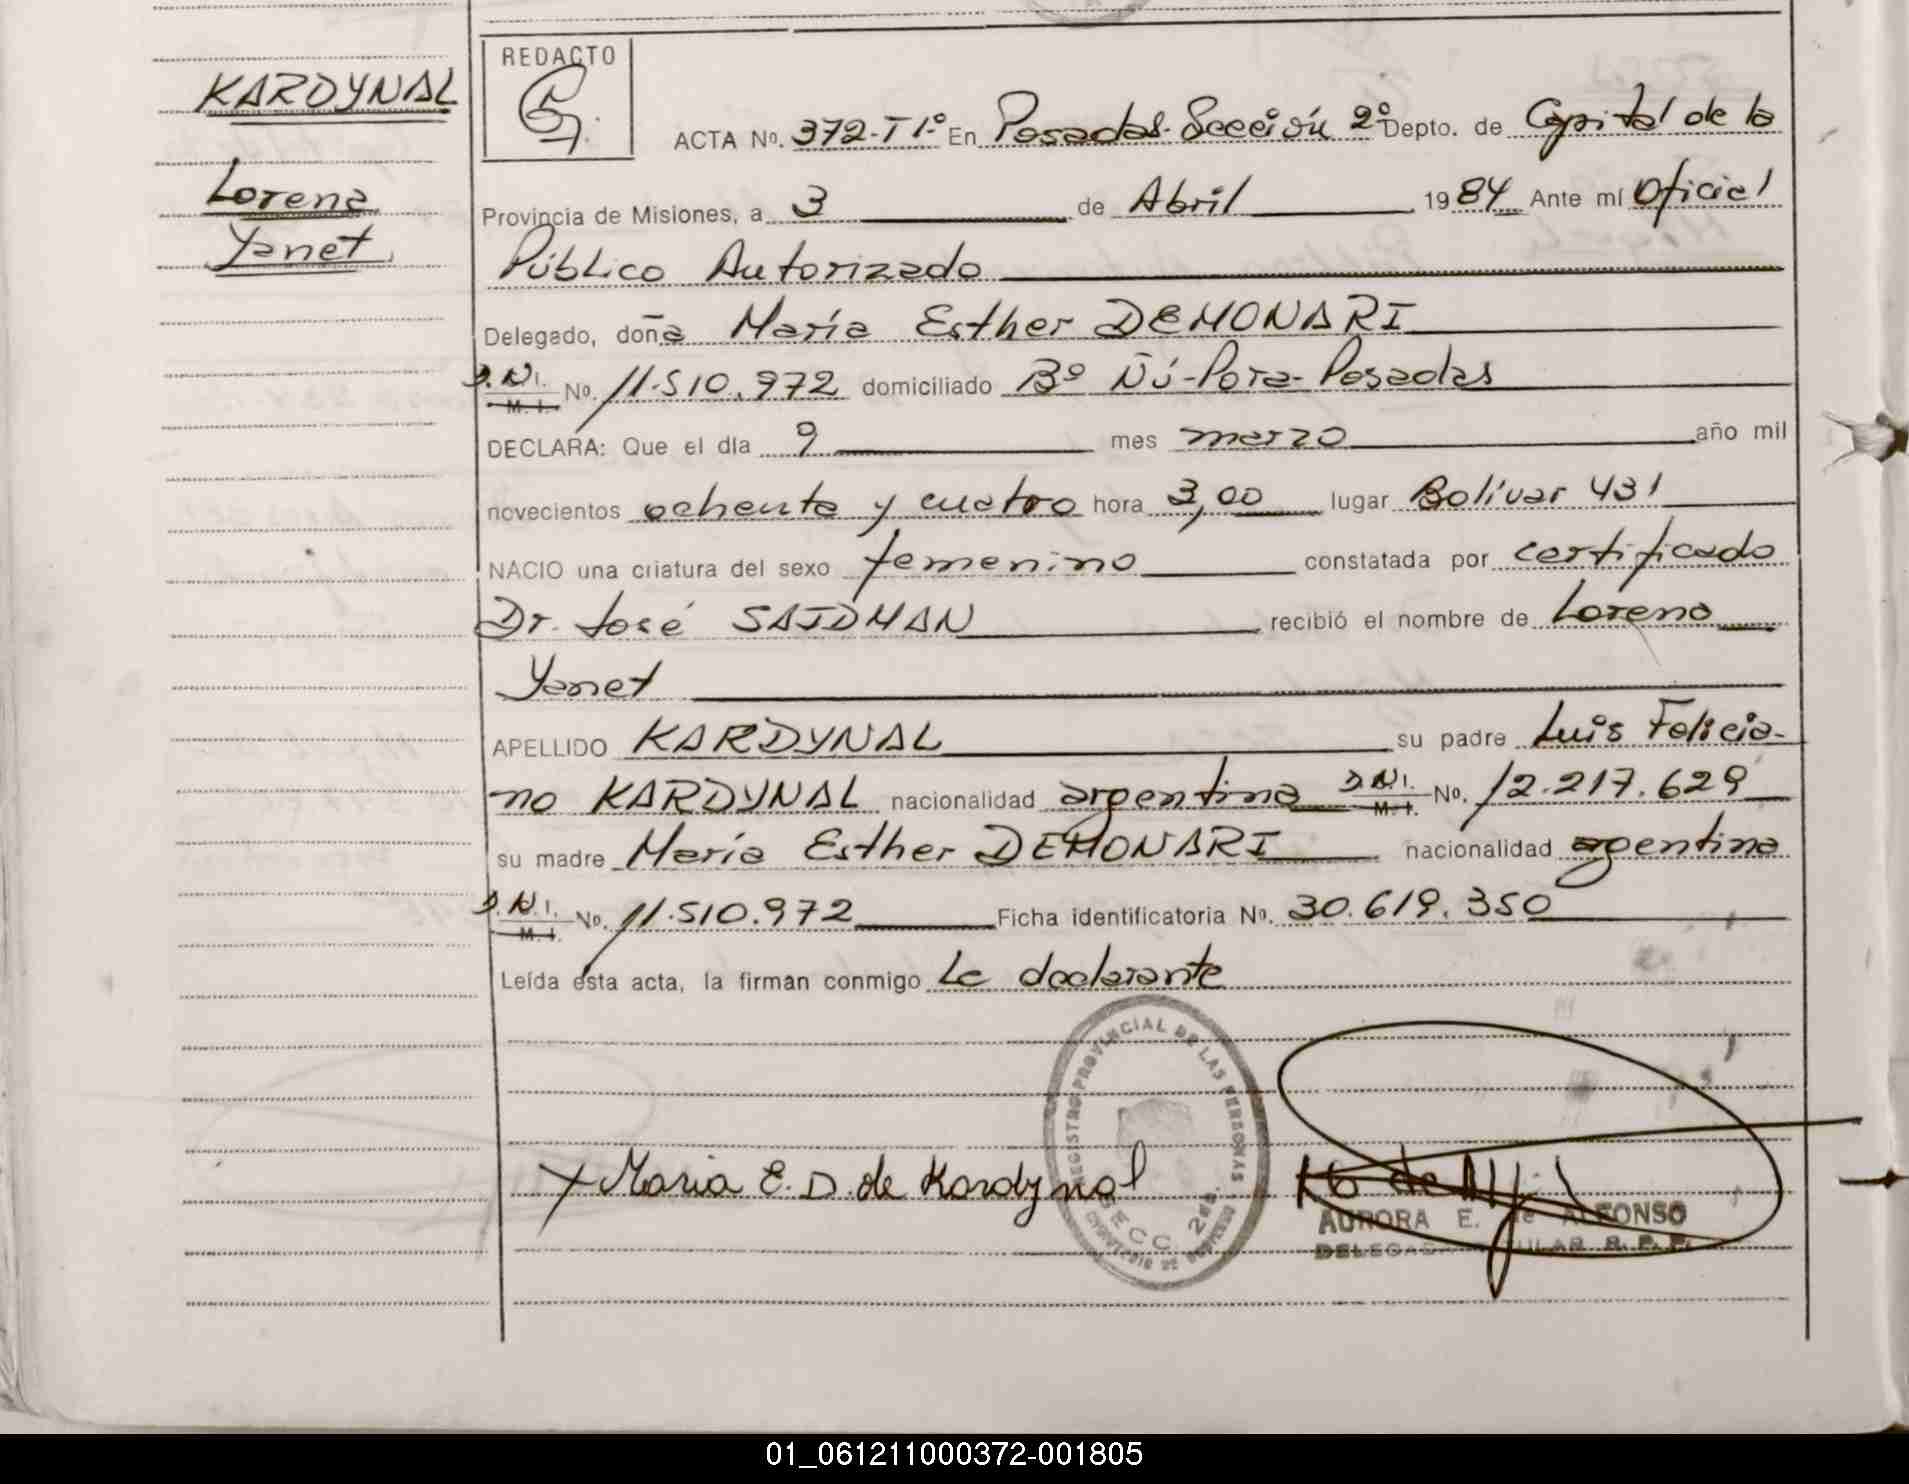 KARDYNAL
Lorena
Yanet
REDACTO
ACTA No. 372-T1º En Posadas-Sección 2º Depto. de Capital de la
Provincia de Misiones, a 3 de Abril 1984 Ante mí Oficial
Público Autorizado
Delegado, doña María Esther DEMONARI
D.N.I. M. I. No. 11.510.972 domiciliado Bº Ñú-Pora-Posadas
DECLARA: Que el día 9 mes marzo año mil
novecientos ochenta y cuatro hora 3,00 lugar Bolívar 431
NACIO una criatura del sexo femenino constatada por certificado
Dr. José SAIDMAN recibió el nombre de Lorena
Yanet
APELLIDO KARDYNAL su padre Luis Felicia-
no KARDYNAL nacionalidad argentina D.N.I. M. I. No. 12.217.629
su madre María Esther DEMONARI nacionalidad argentina
D.N.I. M. I. No. 11.510.972 Ficha identificatoria No. 30.619.350
Leída esta acta, la firman conmigo la declarante
REGISTRO PROVINCIAL DE LAS PERSONAS
SECC. 2da.
X Maria E. D. de Kardynal
AURORA E. de ALFONSO
DELEGADA TITULAR R. P. P.
01_061211000372-001805